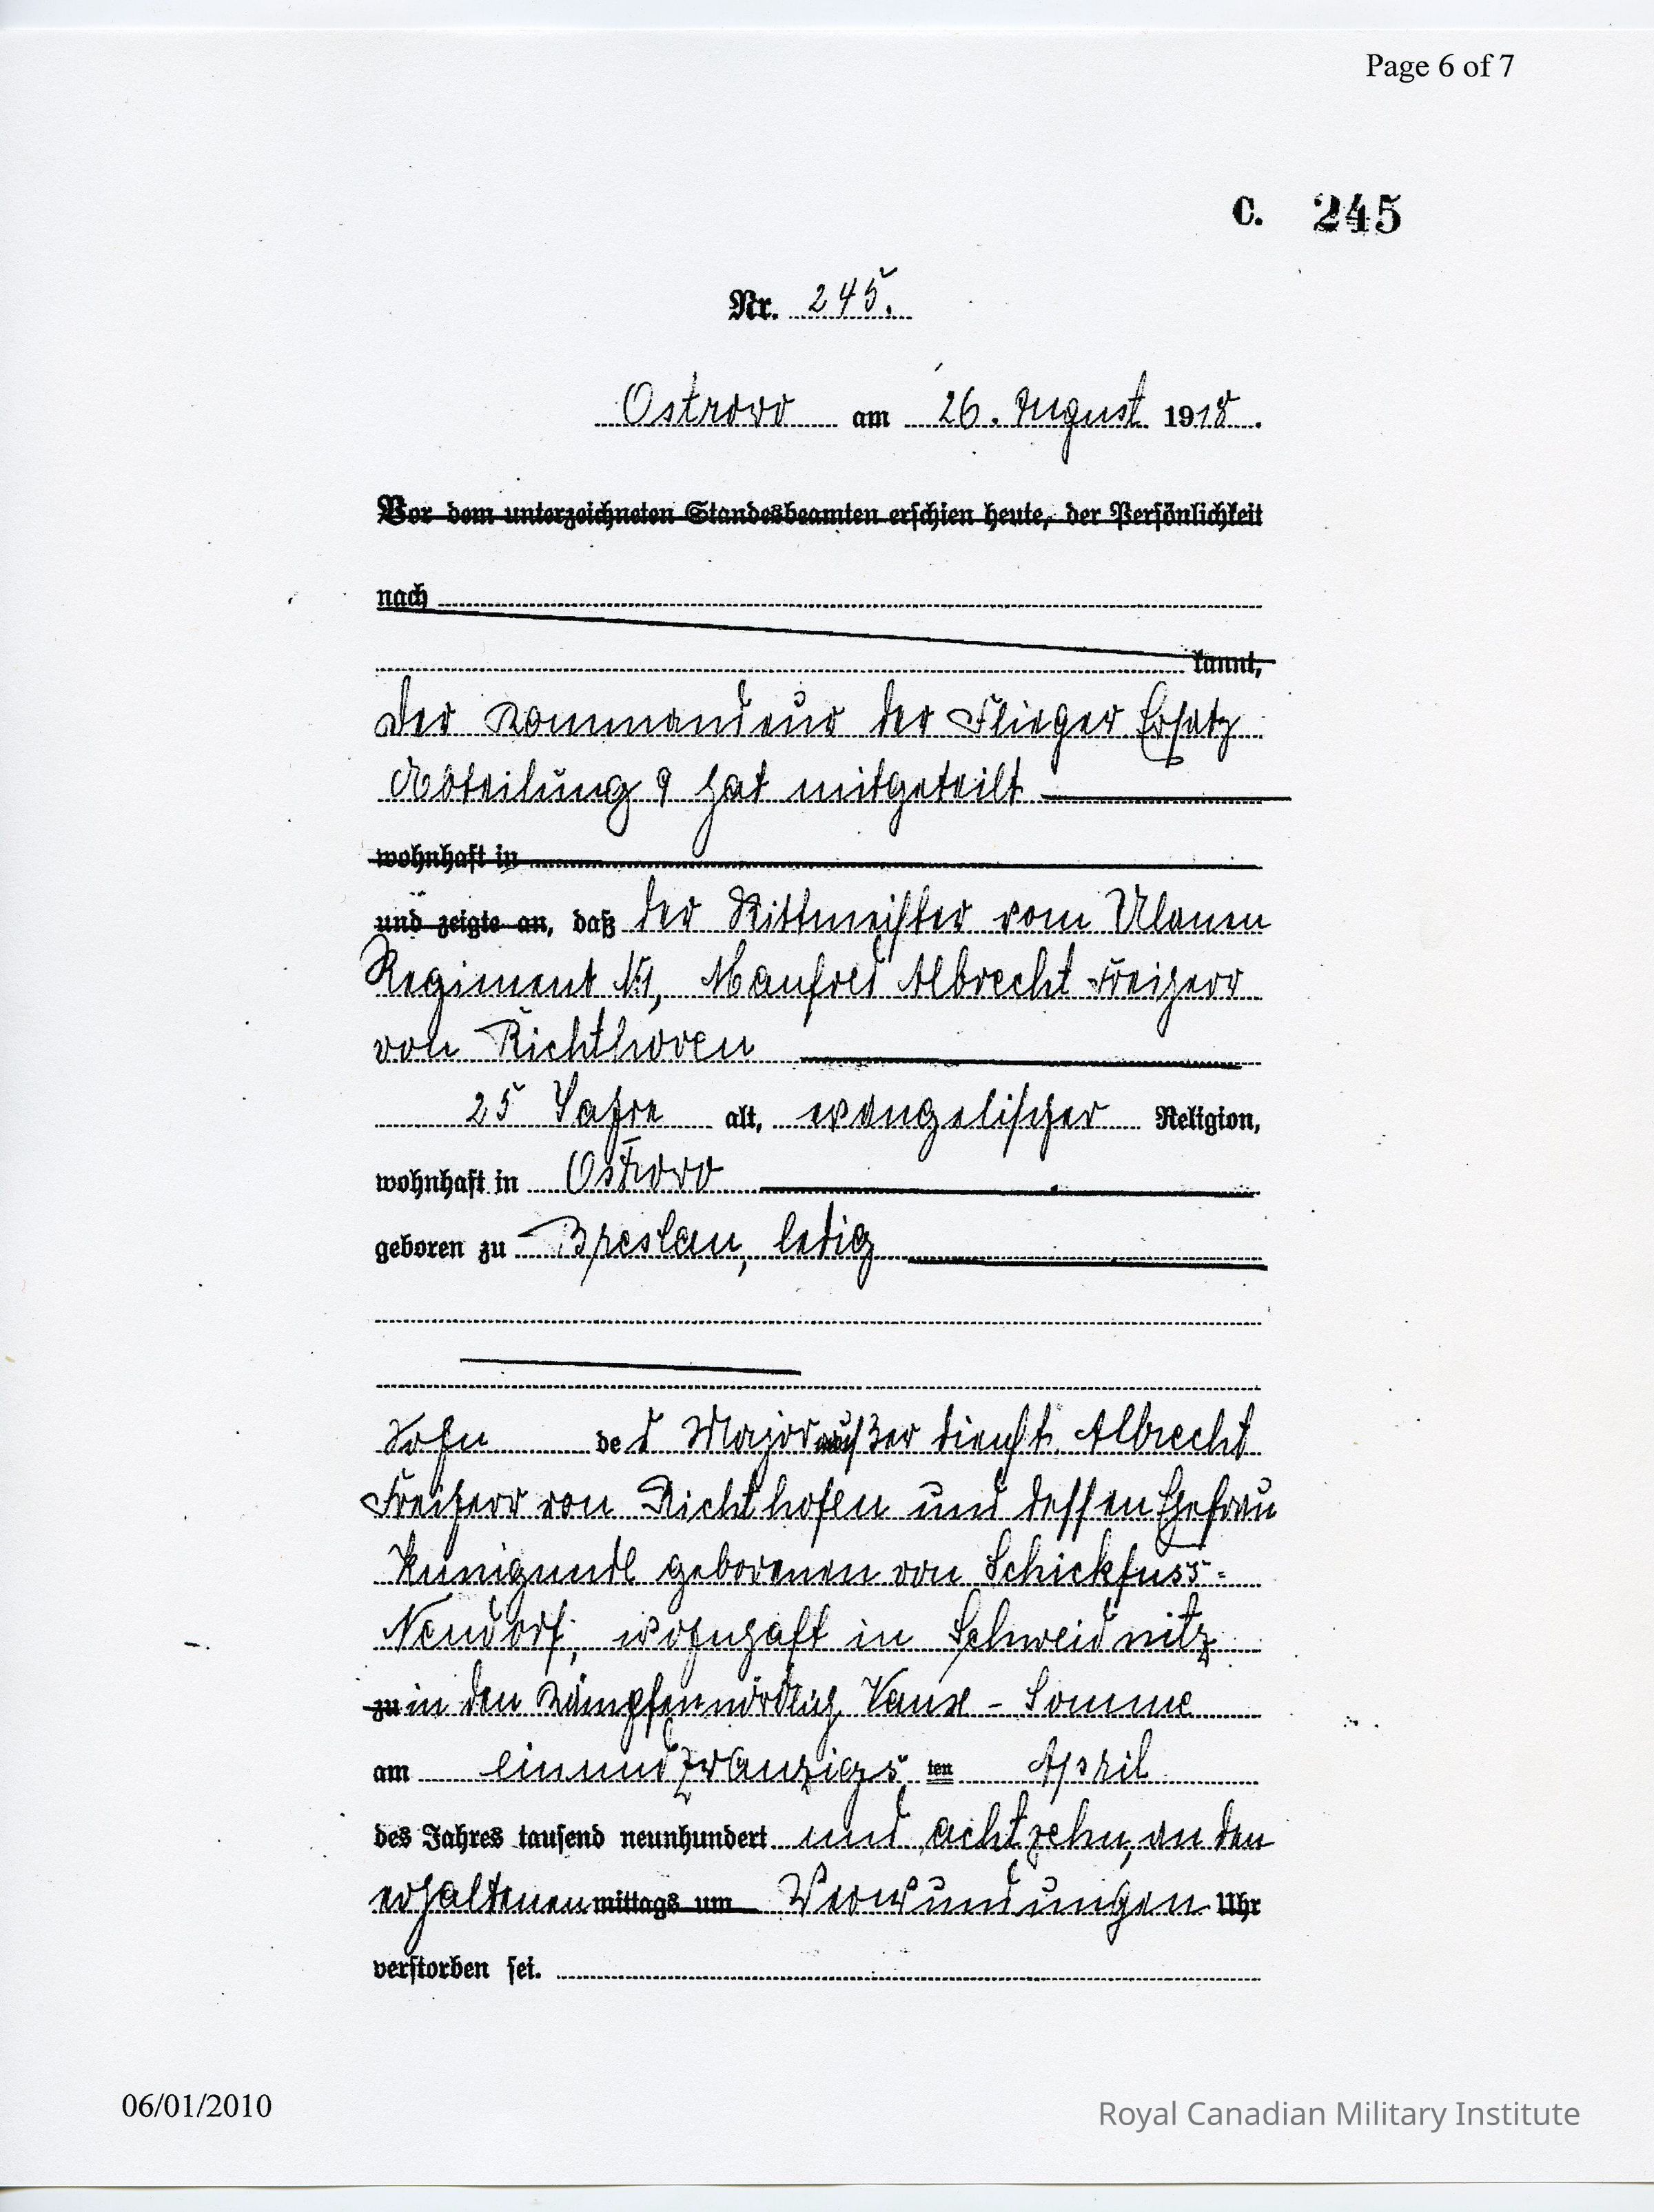 Page 6 of 7
C. 245
Nr. 245.
Ostrowo am 26. August 1918.
Vor dem unterzeichneten Standesbeamten erschien heute, der Persönlichkeit
nach
kannt,
der Kommandeur der Flieger Ersatz
Abteilung 9 hat mitgeteilt
wohnhaft in
und zeigte an, daß der Rittmeister vom Ulanen
Regiment № 1, Manfred Albrecht Freiherr
von Richthoven
25 Jahre alt, evangelischer Religion,
wohnhaft in Ostrowo
geboren zu Breslau, ledig
Sohn des Major außer dienst Albrecht
Freiherr von Richthofen und dessen Ehefrau
Kunigunde geborenen von Schickfuss-
Neudorf, wohnhaft in Schweidnitz
zu in den Kämpfen nördlich Vaux - Somme
am einundzwanzigs ten April
des Jahres tausend neunhundert und achtzehn, an den
erhaltenen mittags um Verwundungen Uhr
verstorben sei.
06/01/2010
Royal Canadian Military Institute